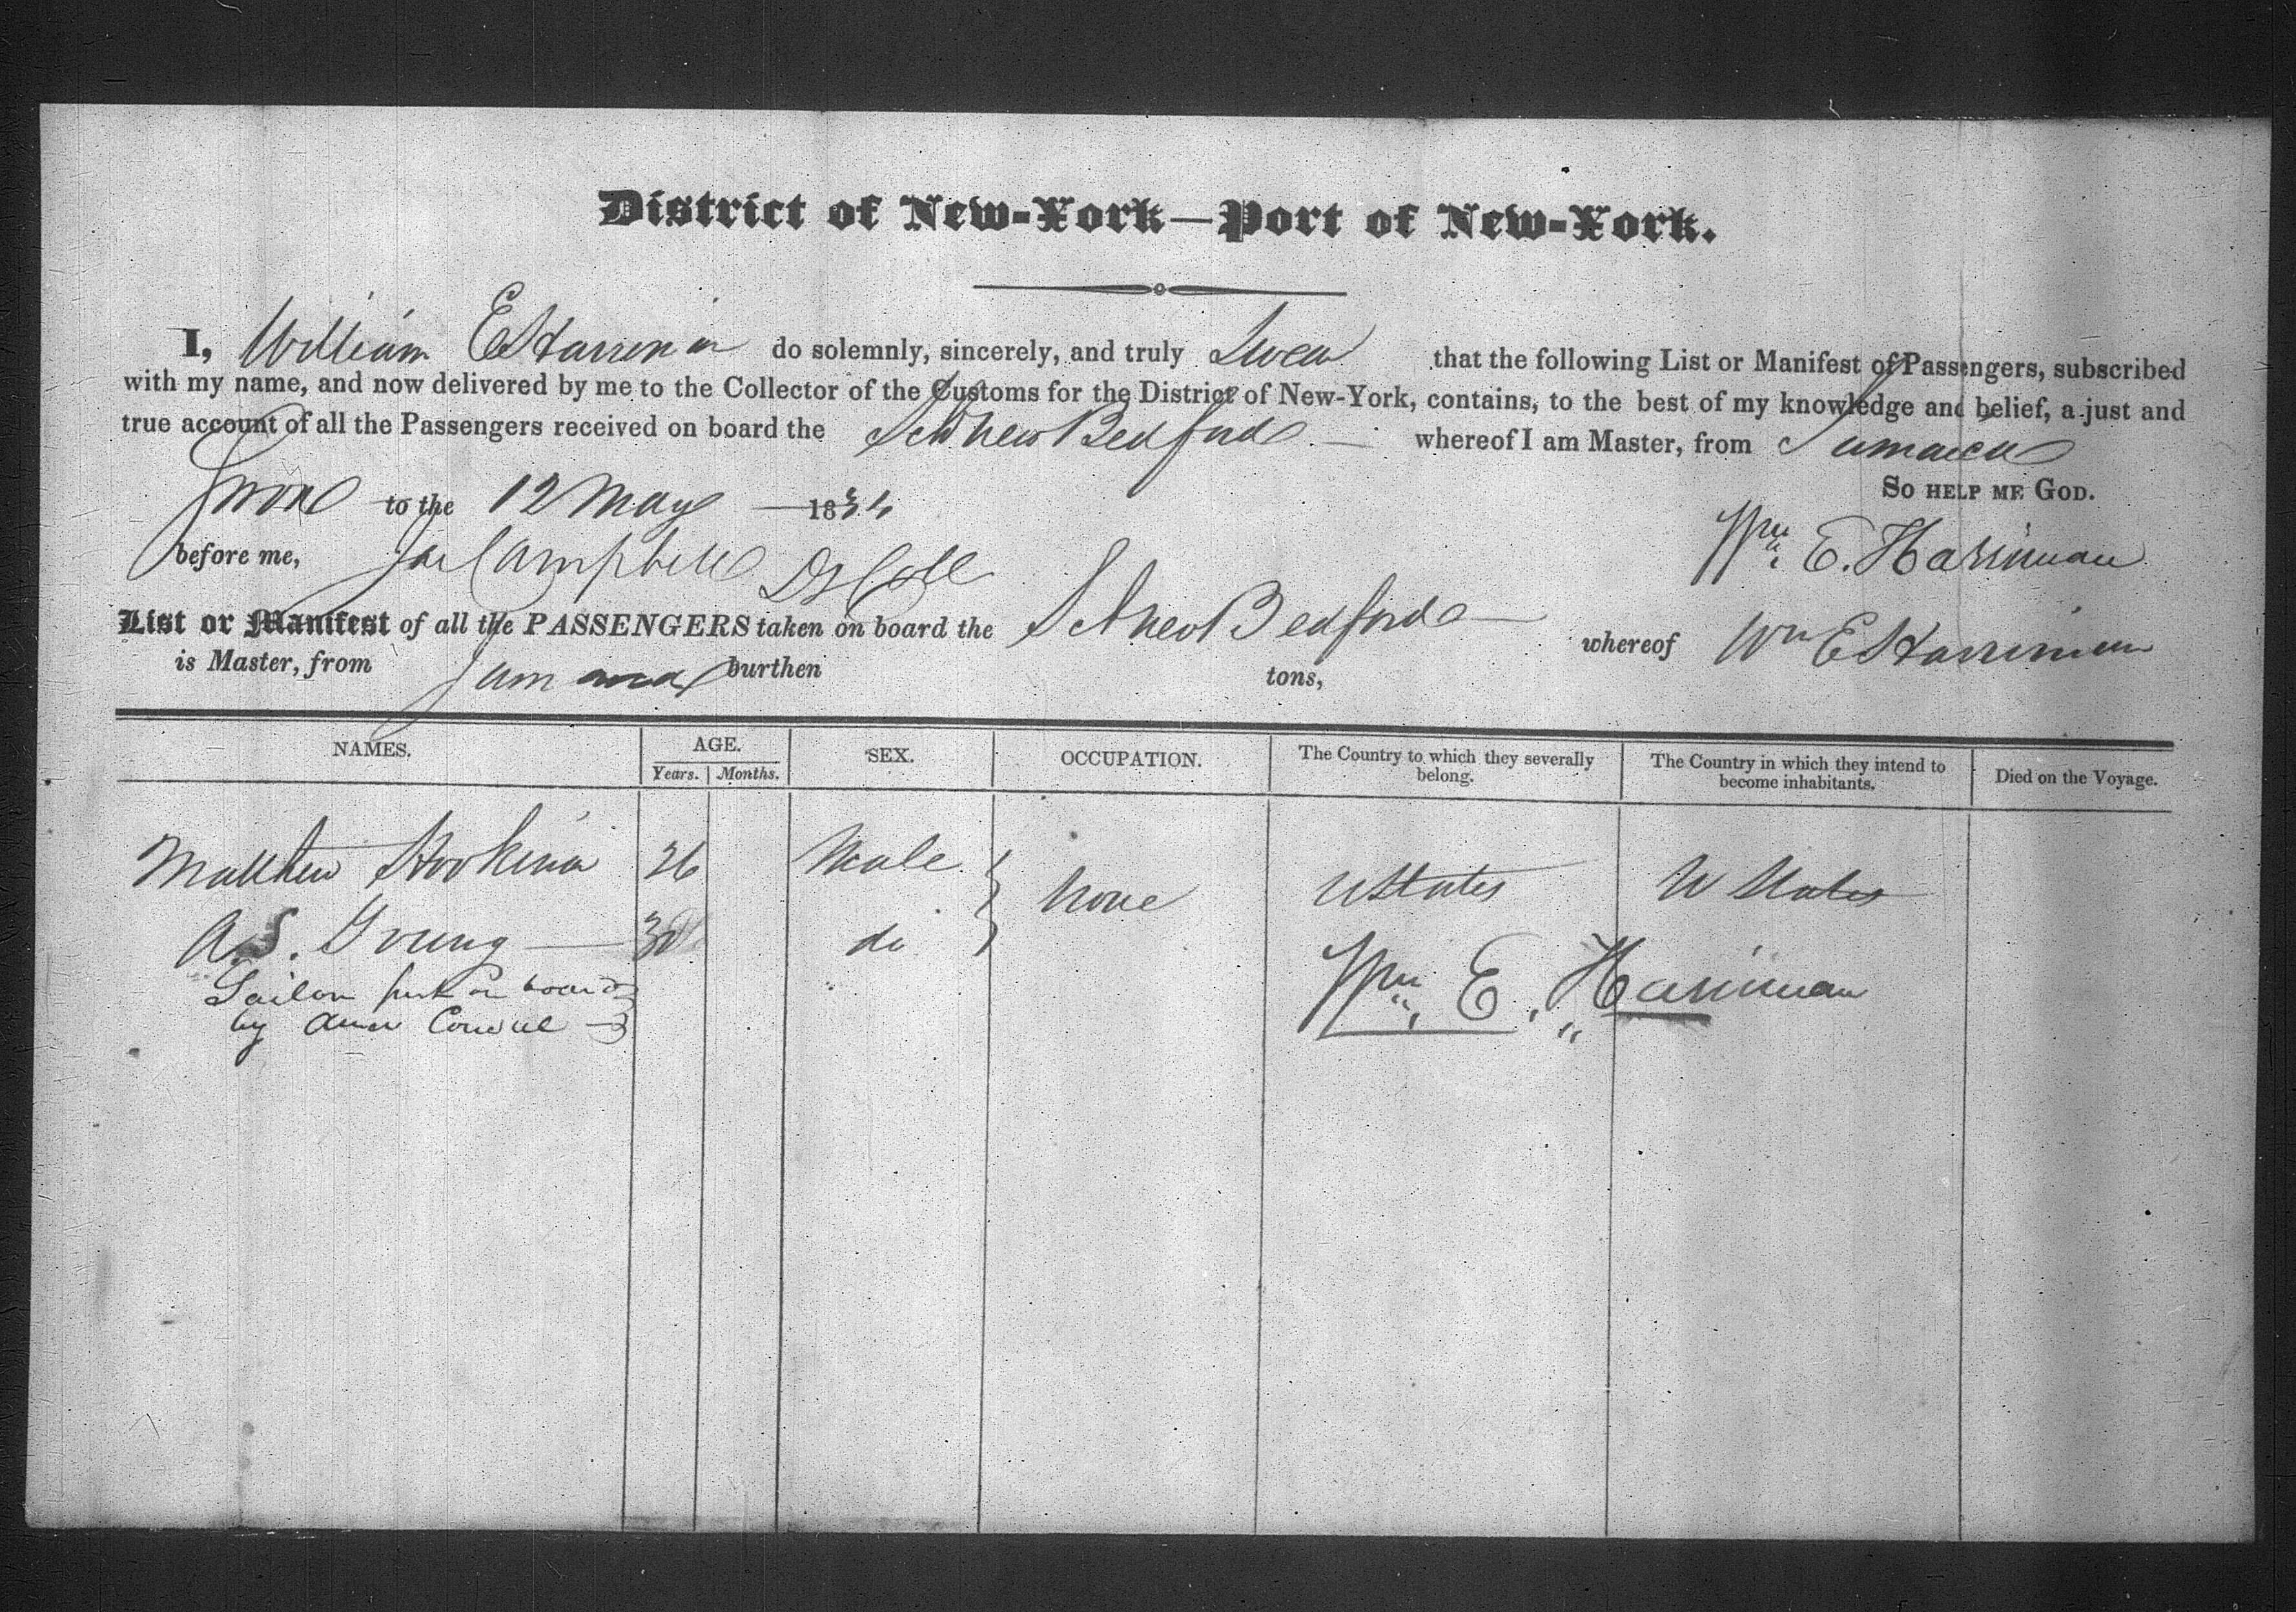 District of New-York—Port of New-York.
I, William E Harriman do solemnly, sincerely, and truly Swear that the following List or Manifest of Passengers, subscribed
with my name, and now delivered by me to the Collector of the Customs for the District of New-York, contains, to the best of my knowledge and belief, a just and
true account of all the Passengers received on board the Sch New Bedford whereof I am Master, from Jamaica
So help me God.
Sworn to the 12 May 1834
Wm E. Harriman
before me, Campbell D Coll
List or Manifest of all the PASSENGERS taken on board the Sch New Bedford whereof Wm E Harriman
is Master, from Jamaica burthen tons,
NAMES. AGE. SEX. OCCUPATION. The Country to which they severally belong. The Country in which they intend to become inhabitants. Died on the Voyage.
Years. Months.
Matthew Hopkins 26 Male None U States U States
A.S. Young 30 do
Sailor put on board
by Amer Consul
Wm E. Harriman